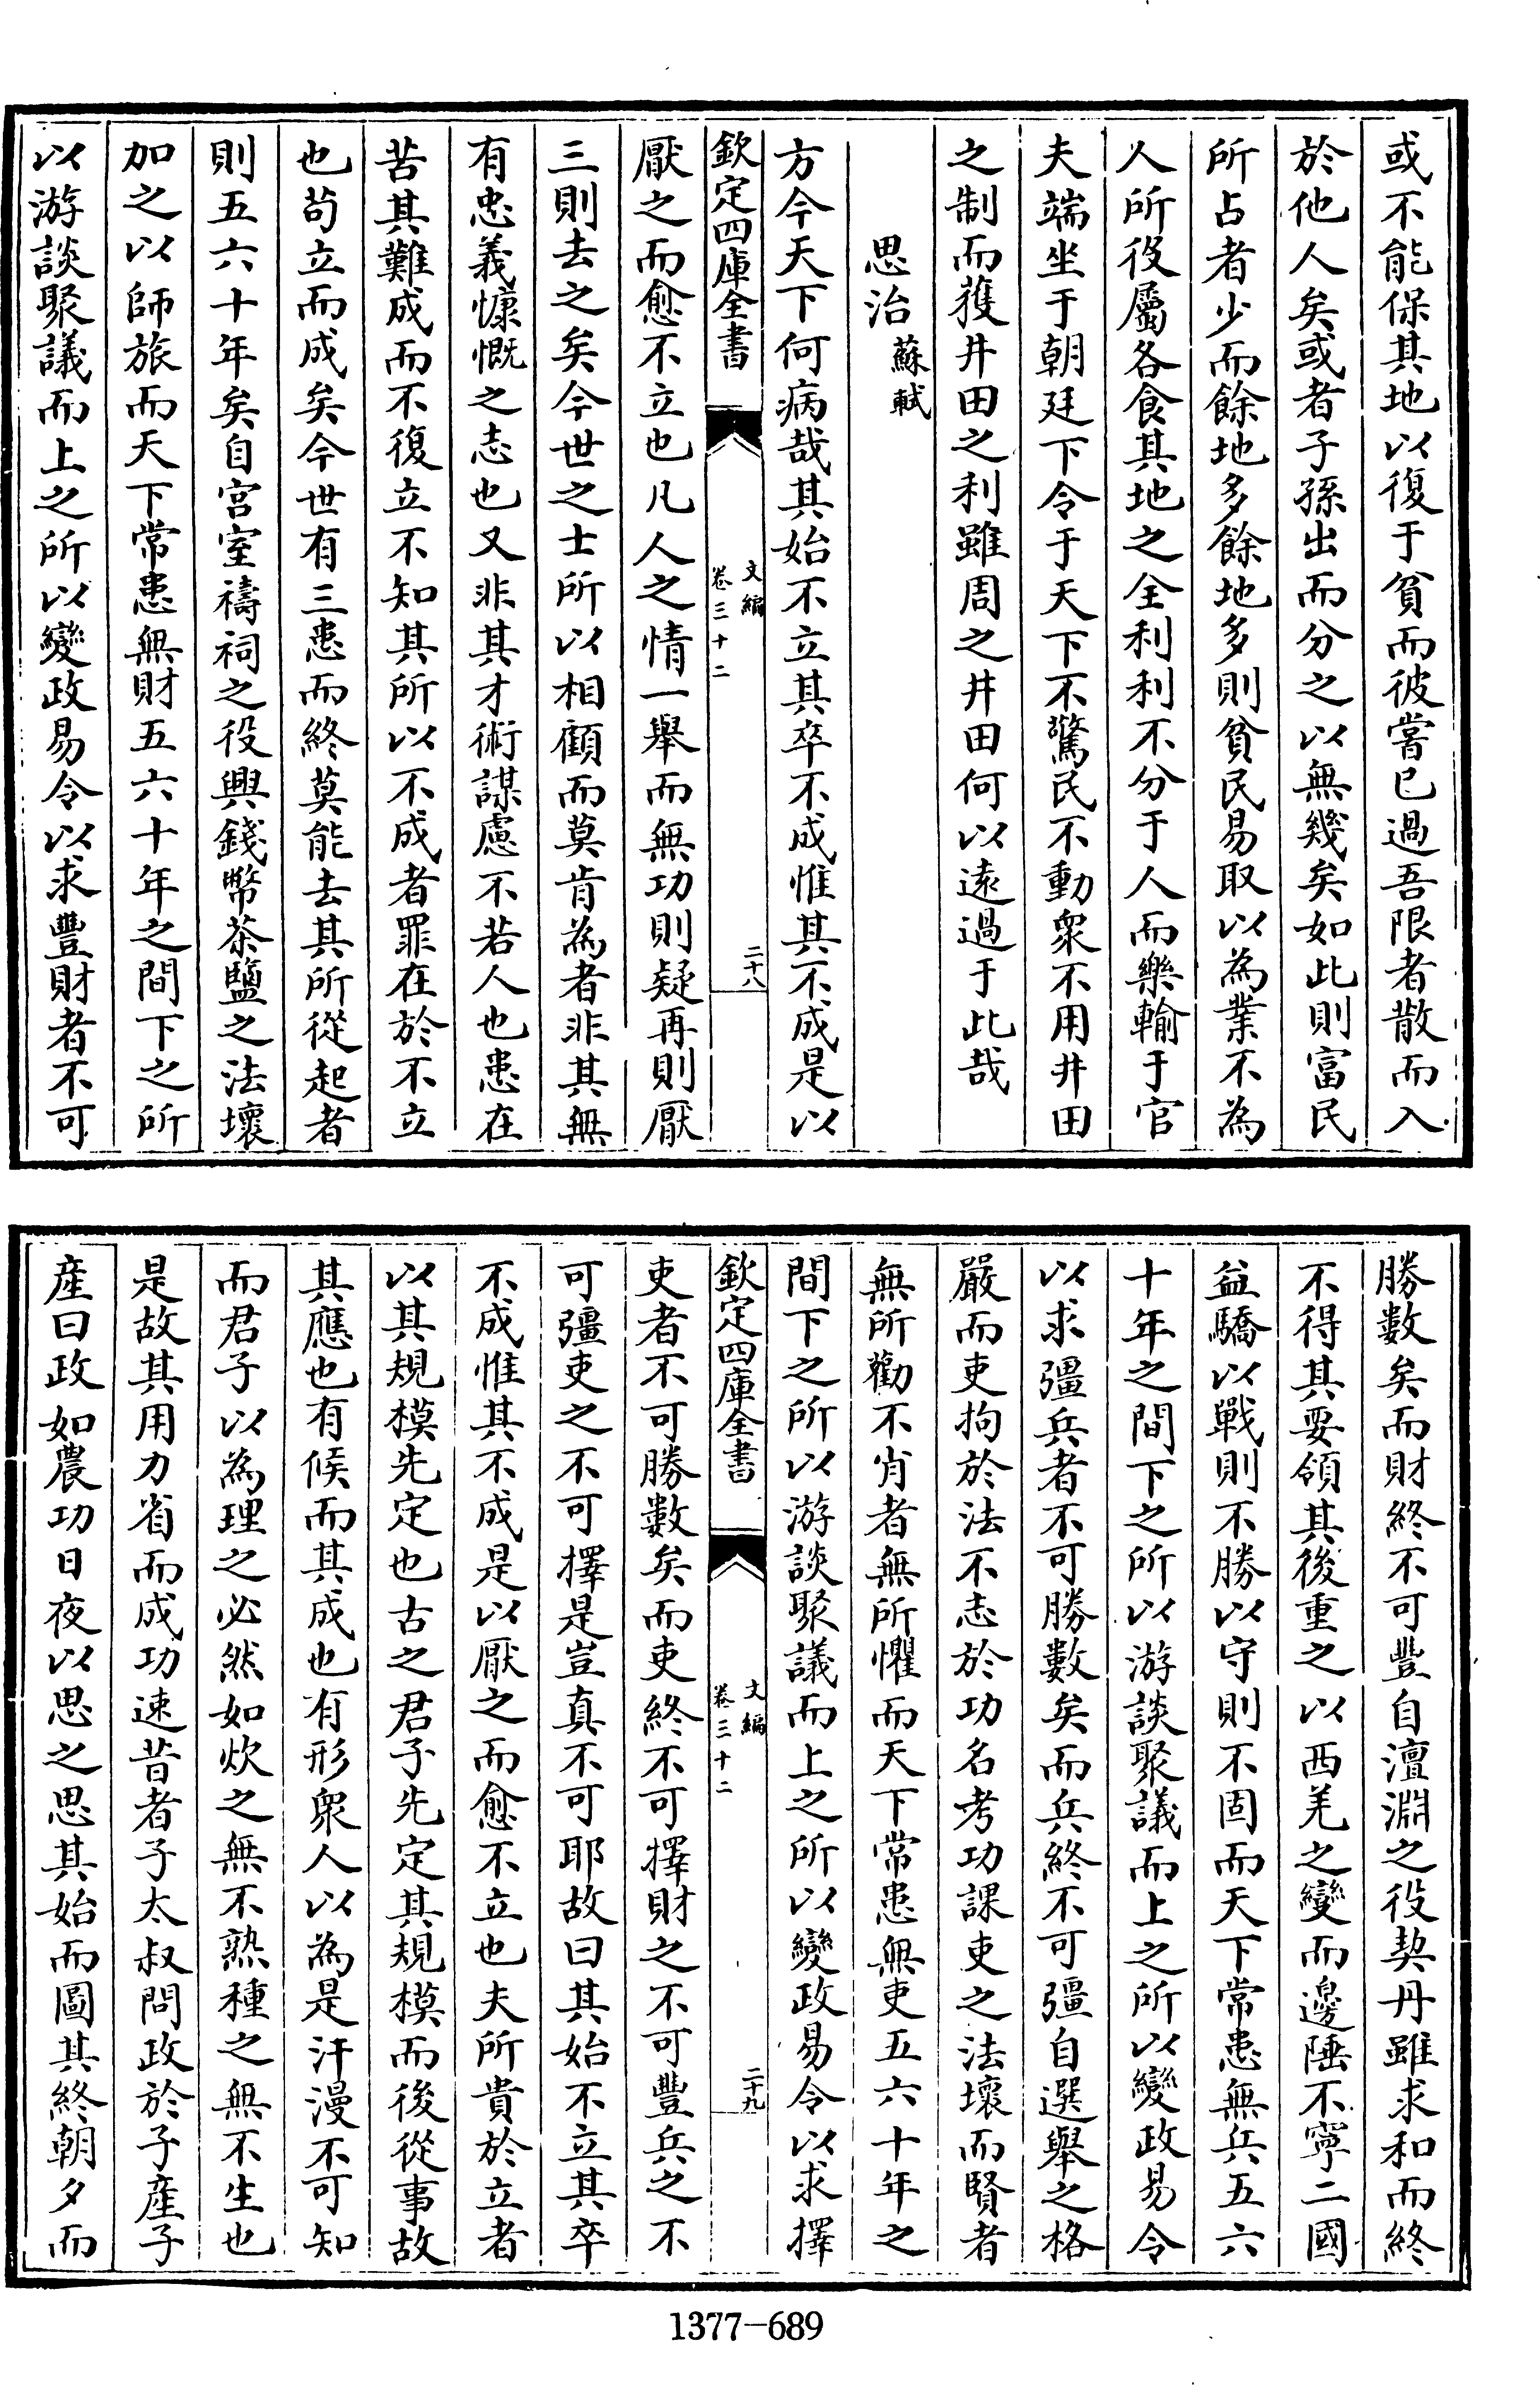 或不能保其地以復于貧而彼嘗已過吾限者散而入
於他人矣或者子孫出而分之以無幾矣如此則富民
所占者少而餘地多餘地多則貧民易取以為業不為
人所役屬各食其地之全利利不分于人而樂輸于官
夫端坐于朝廷下令于天下不驚民不動衆不用井田
之制而獲井田之利雖周之井田何以遠過于此哉
思治 蘇軾
方今天下何病哉其始不立其卒不成惟其不成是以
欽定四庫全書 文編 卷三十二 二十八
厭之而愈不立也凡人之情一舉而無功則疑再則厭
三則去之矣今世之士所以相顧而莫肯為者非其無
有忠義慷慨之志也又非其才術謀慮不若人也患在
苦其難成而不復立不知其所以不成者罪在於不立
也苟立而成矣今世有三患而終莫能去其所從起者
則五六十年矣自宮室禱祠之役興錢幣茶鹽之法壞
加之以師旅而天下常患無財五六十年之間下之所
以游談聚議而上之所以變政易令以求豐財者不可
勝數矣而財終不可豐自澶淵之役契丹雖求和而終
不得其要領其後重之以西羌之變而邊陲不寧二國
益驕以戰則不勝以守則不固而天下常患無兵五六
十年之間下之所以游談聚議而上之所以變政易令
以求彊兵者不可勝數矣而兵終不可彊自選舉之格
嚴而吏拘於法不志於功名考功課吏之法壞而賢者
無所勸不肖者無所懼而天下常患無吏五六十年之
間下之所以游談聚議而上之所以變政易令以求擇
欽定四庫全書 文編 卷三十二 二十九
吏者不可勝數矣而吏終不可擇財之不可豐兵之不
可彊吏之不可擇是豈真不可耶故曰其始不立其卒
不成惟其不成是以厭之而愈不立也夫所貴於立者
以其規模先定也古之君子先定其規模而後從事故
其應也有候而其成也有形衆人以為是汗漫不可知
而君子以為理之必然如炊之無不熟種之無不生也
是故其用力省而成功速昔者子太叔問政於子產子
產曰政如農功日夜以思之思其始而圖其終朝夕而
1377-689